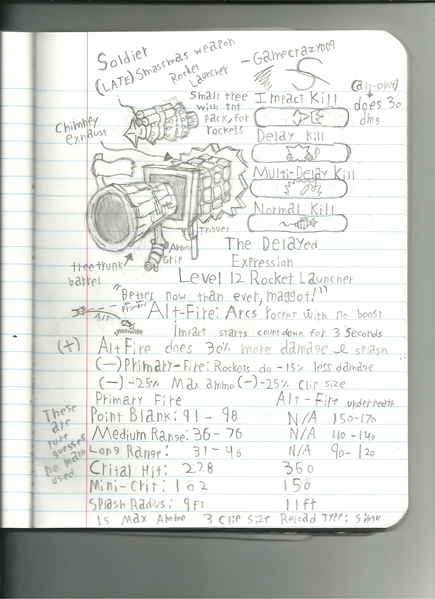 Soldier
(LATE) Smassmas weapon
Rocket
Launcher
-Gamecrazy009
Small tree
with tnt
pack, for
rockets
Chimney
exhaust
Impact Kill
(alt-only)
does 30
dmg
Delay Kill
Multi-Delay Kill
Normal Kill
Trigger
Grip
tree trunk
barrel
The Delayed
Expression
Level 12 Rocket Launcher
"Better now than ever, maggot!"
Primary
Alt
Alt-Fire: Arcs rocket with no boost
Impact starts countdown for 3 seconds
(+) Alt Fire does 30% more damage & splash
(-) Primary-Fire: Rockets do -15% less damage
(-) -25% Max ammo (-) -25% Clip size
Primary Fire Alt-Fire underneath
Point Blank: 91 - 98 N/A 150-170
Medium Range: 36 - 76 N/A 110-140
Long Range: 31 - 46 N/A 90-120
Crital Hit: 228 360
Mini-Crit: 102 150
Splash Radius: 9ft 11ft
15 Max Ammo 3 Clip Size Reload Type:
These
are
pure
guesses
no math
used